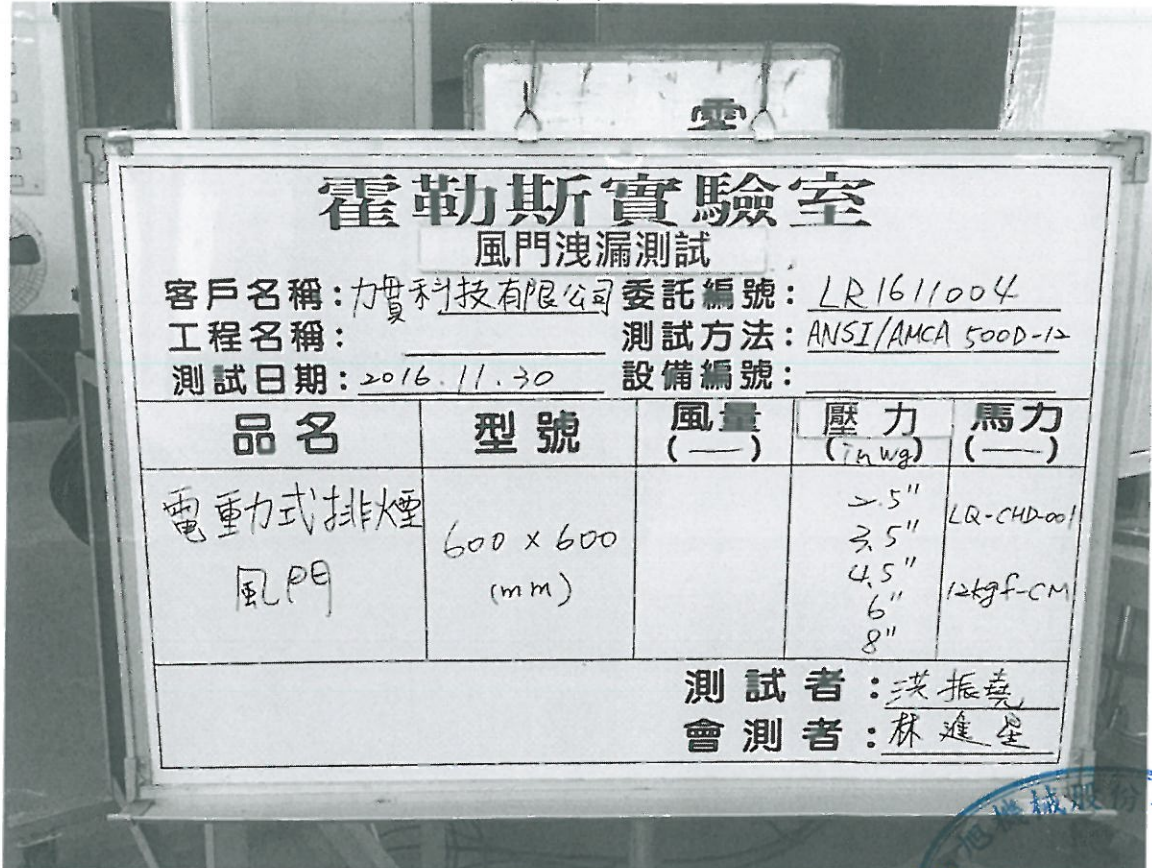 霍
霍勒斯實驗室
風門洩漏測試
客戶名稱：力貫科技有限公司 委託編號：LR1611004
工程名稱： 測試方法：ANSI/AMCA 500D-12
測試日期：2016.11.30 設備編號：
品名 型號 風量 壓力 馬力
(—) (in wg) (—)
電動式排煙
風門
600 x 600
(mm)
2.5"
3.5"
4.5"
6"
8"
LQ-CHD-001
12kgf-CM
測試者：洪振堯
會測者：林進星
旭機械股份